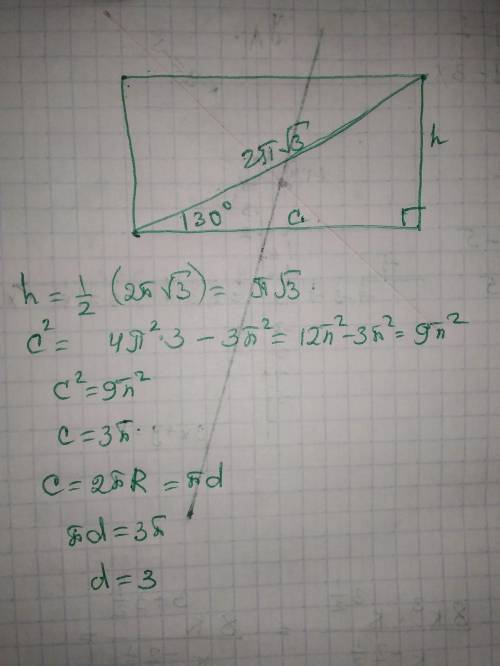 2π√3
h
30°
c
h = 1/2 (2π√3) = π√3.
c² = 4π²·3 − 3π² = 12π² − 3π² = 9π²
c² = 9π²
c = 3π.
c = 2πR = πd
πd = 3π
d = 3